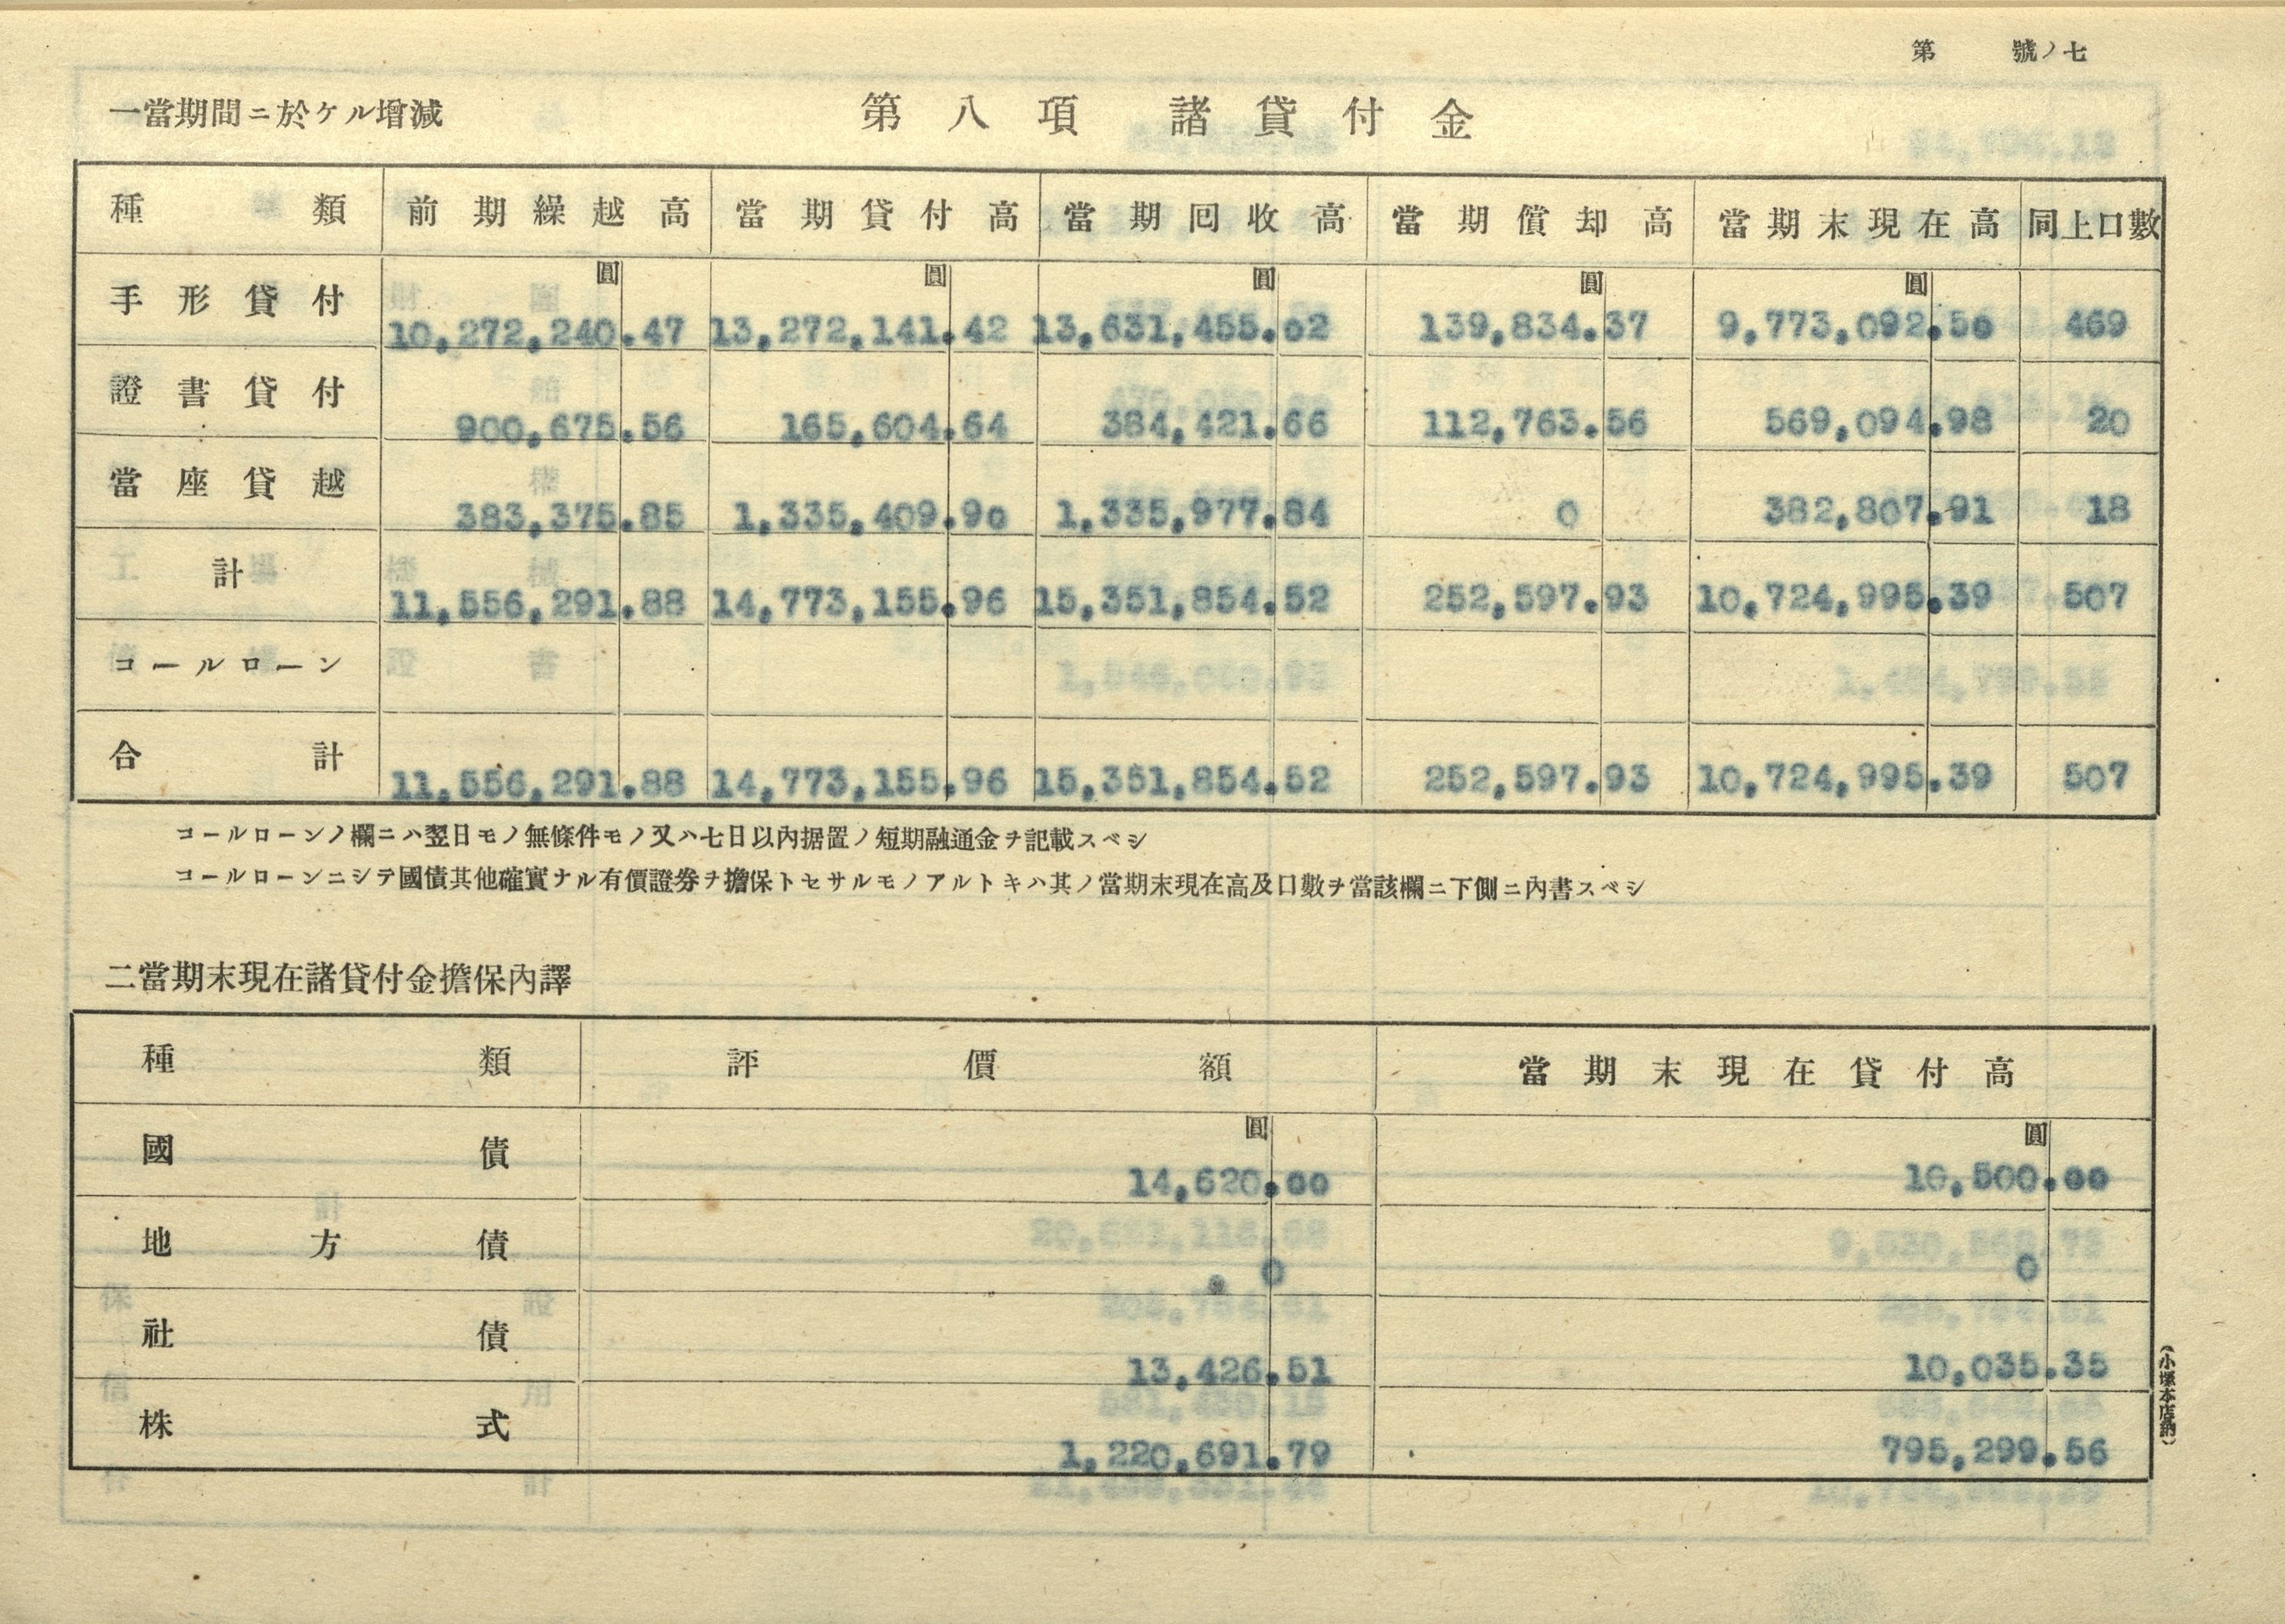 第 號ノ七
一當期間ニ於ケル增減 第八項 諸貸付金
種類 前期繰越高 當期貸付高 當期回收高 當期償却高 當期末現在高 同上口數
圓 圓 圓 圓 圓
手形貸付 10,272,240.47 13,272,141.42 13,631,455.02 139,834.37 9,773,092.50 469
證書貸付 900,675.56 165,604.64 384,421.66 112,763.56 569,094.98 20
當座貸越 383,375.85 1,335,409.90 1,335,977.84 0 382,807.91 18
計 11,556,291.88 14,773,155.96 15,351,854.52 252,597.93 10,724,995.39 507
コールローン
合計 11,556,291.88 14,773,155.96 15,351,854.52 252,597.93 10,724,995.39 507
コールローンノ欄ニハ翌日モノ無條件モノ又ハ七日以內据置ノ短期融通金ヲ記載スベシ
コールローンニシテ國債其他確實ナル有價證劵ヲ擔保トセサルモノアルトキハ其ノ當期末現在高及口數ヲ當該欄ニ下側ニ內書スベシ
二當期末現在諸貸付金擔保內譯
種類 評價額 當期末現在貸付高
圓 圓
國債 14,620.00 10,500.00
地方債 0 0
社債 13,426.51 10,035.35
株式 1,220,691.79 795,299.56
(小塚本店納)